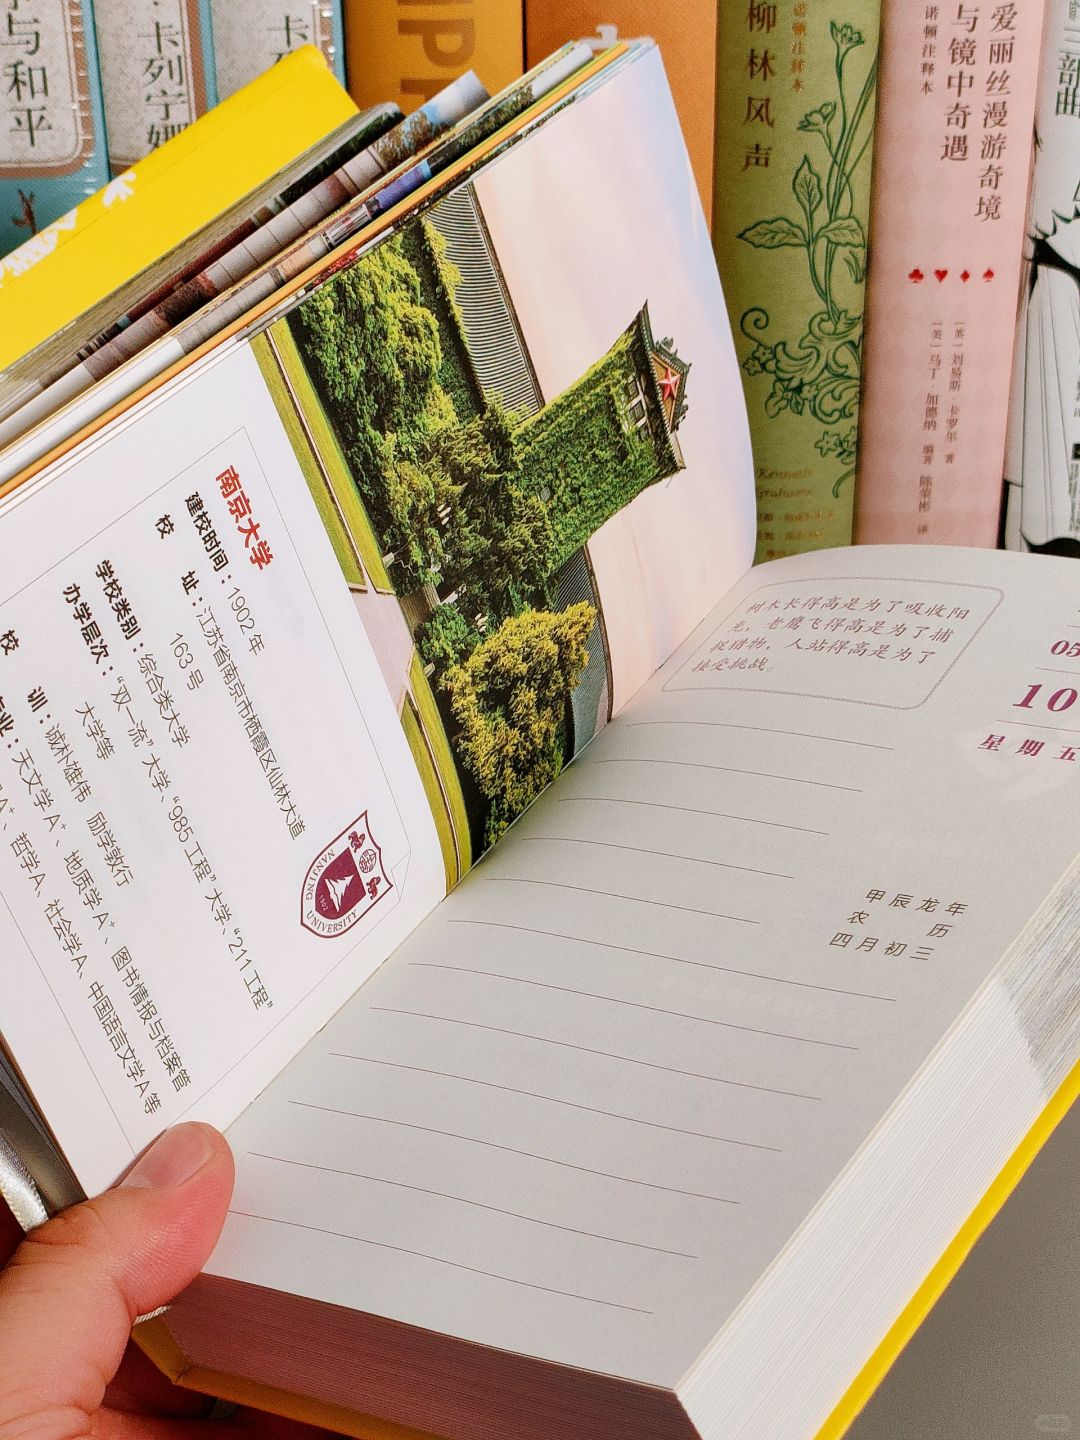 与和平
卡列宁娜
卡列
柳林风声
诺顿注释本
Kenneth
Grahame
爱丽丝漫游奇境
与镜中奇遇
诺顿注释本
[英] 刘易斯·卡罗尔 著
[美] 马丁·加德纳 编著 陈荣彬 译
三部曲
南京大学
建校时间：1902年
校 址：江苏省南京市栖霞区仙林大道
163号
学校类别：综合类大学
办学层次：“双一流”大学、“985工程”大学、“211工程”
大学等
校 训：诚朴雄伟 励学敦行
业：天文学A+、地质学A+、图书情报与档案管
A+、哲学A、社会学A、中国语言文学A等
NANJING UNIVERSITY
1902
树木长得高是为了吸收阳
光，老鹰飞得高是为了捕
捉猎物，人站得高是为了
接受挑战。
05
10
星期五
甲辰龙年
农 历
四月初三